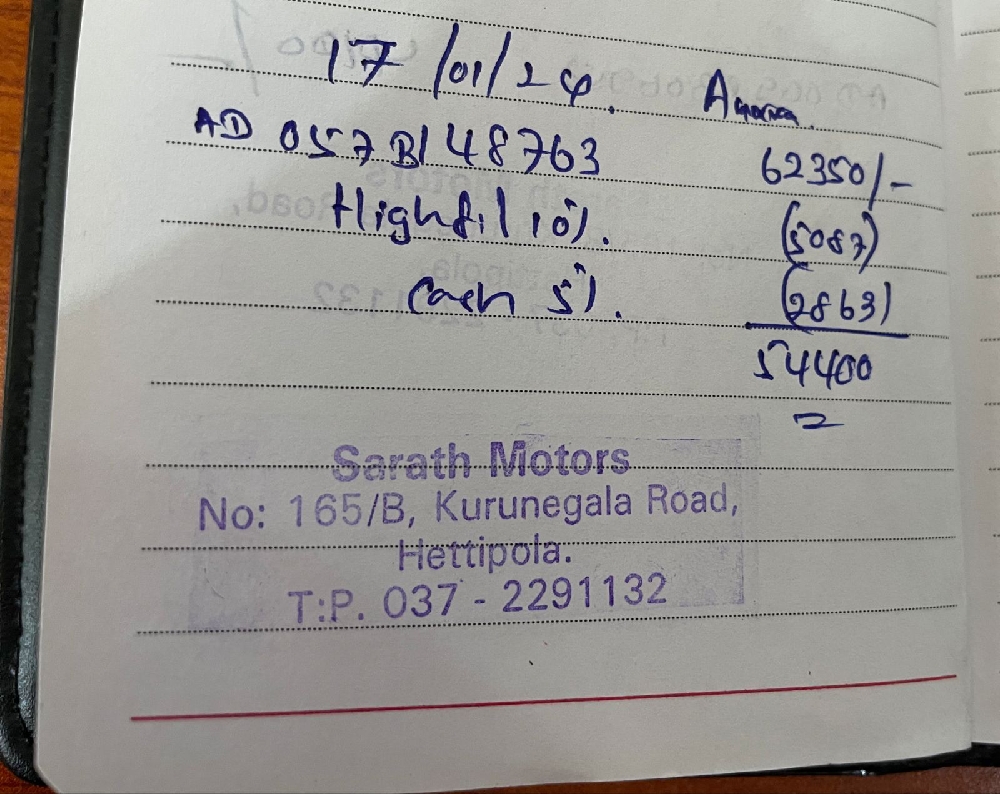 17/01/24.
AD 057B148763 62350/-
Highfil 10%. (5087)
Cash 5%. (2863)
54400
Sarath Motors
No: 165/B, Kurunegala Road,
Hettipola.
T:P. 037 - 2291132